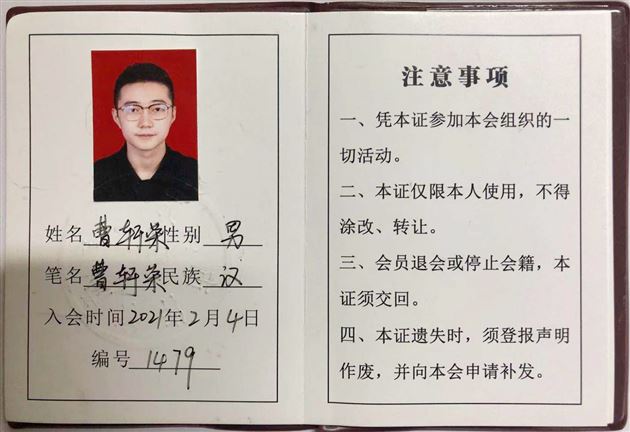 姓名 曹轩荣 性别 男
笔名 曹轩荣 民族 汉
入会时间 2021年2月4日
编号 1479
注意事项
一、凭本证参加本会组织的一
切活动。
二、本证仅限本人使用，不得
涂改、转让。
三、会员退会或停止会籍，本
证须交回。
四、本证遗失时，须登报声明
作废，并向本会申请补发。